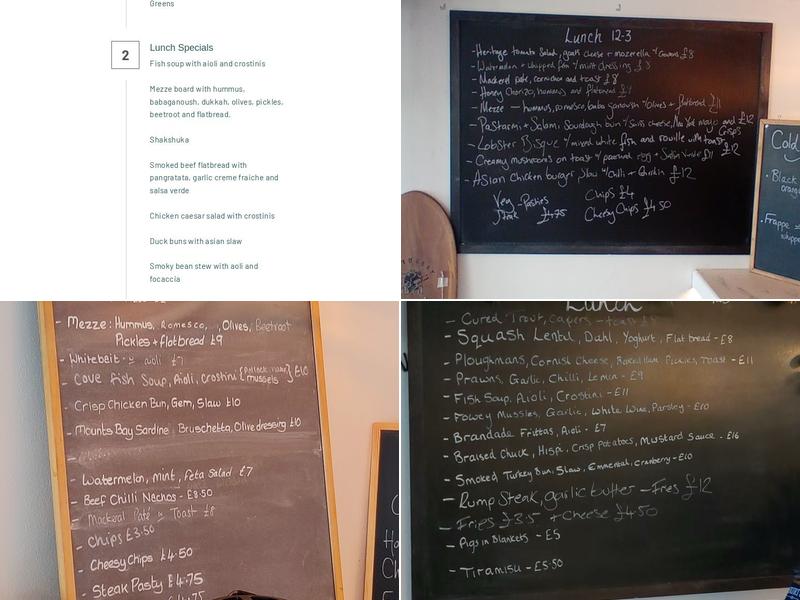 Greens
2
Lunch Specials
Fish soup with aioli and crostinis
Mezze board with hummus,
babaganoush, dukkah, olives, pickles,
beetroot and flatbread.
Shakshuka
Smoked beef flatbread with
pangratata, garlic creme fraiche and
salsa verde
Chicken caesar salad with crostinis
Duck buns with asian slaw
Smoky bean stew with aoli and
focaccia
Lunch 12-3
- Heritage tomato Salad, goats cheese + mozerella £8
- Watermelon + whipped feta w/ mint dressing
- Mackerel pate, cornichon and toast £8
- Honey Chorizo, hummus and flatbread
- Mezze - hummus, romesco, baba ganoush w/ Olives + flatbread £11
- Pastarmi + Salami, Sourdough bun w/ Swiss cheese, New York mayo and Crisps £12
- Lobster Bisque w/ mixed white fish and rouille with toast £12
- Creamy mushrooms on toast w/ poached egg + Salsa Verde £11
- Asian Chicken burger, Slaw w/ chilli + Gherkin £12
Veg - Pasties
Steak £4.75
Chips £4
Cheesy Chips £4.50
Cold
Black
Frappe
- Mezze: Hummus, Romesco, Olives, Beetroot
Pickles + flatbread £9
- Whitebait aioli £7
- Cove Fish Soup, Aioli, Crostini { mussels } £10
- Crisp Chicken Bun, Gem, Slaw £10
- Mounts Bay Sardine Bruschetta, Olive dressing £10
- Watermelon, Mint, Feta Salad £7
- Beef Chilli Nachos - £8.50
- Mackeral Paté Toast £8
- Chips £3.50
- Cheesy Chips £4.50
- Steak Pasty £4.75
Lunch
- Cured Trout, Capers - toast
- Squash Lental, Dahl, Yoghurt, Flat bread - £8
- Ploughmans, Cornish Cheese, Pickles, Toast - £11
- Prawns, Garlic, Chilli, Lemin - £9
- Fish Soup, Aioli, Crostini - £11
- Fowey Mussles, Garlic, White Wine, Parsley - £10
- Brandade Frittas, Aioli - £7
- Braised Chuck, Hispi, Crisp Potatoes, Mustard Sauce - £16
- Smoked Turkey Bun, Slaw, Emmental, Cranberry - £10
- Rump Steak, garlic butter - Fries £12
- Fries £3.5 + Cheese £4.50
- Pigs in Blankets - £5
- Tiramisu - £5.50